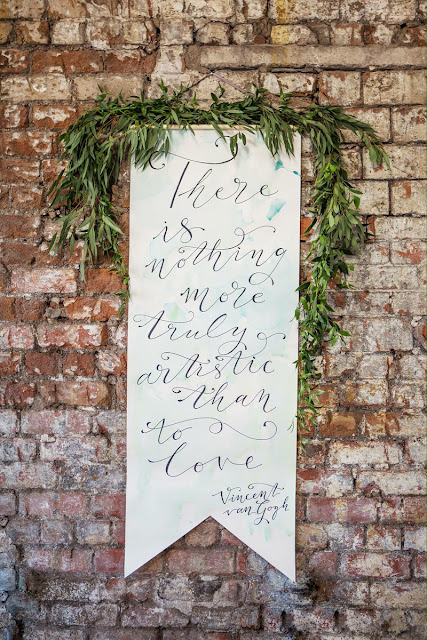 There
is
nothing
more
truly
artistic
than
to
love
Vincent
van Gogh